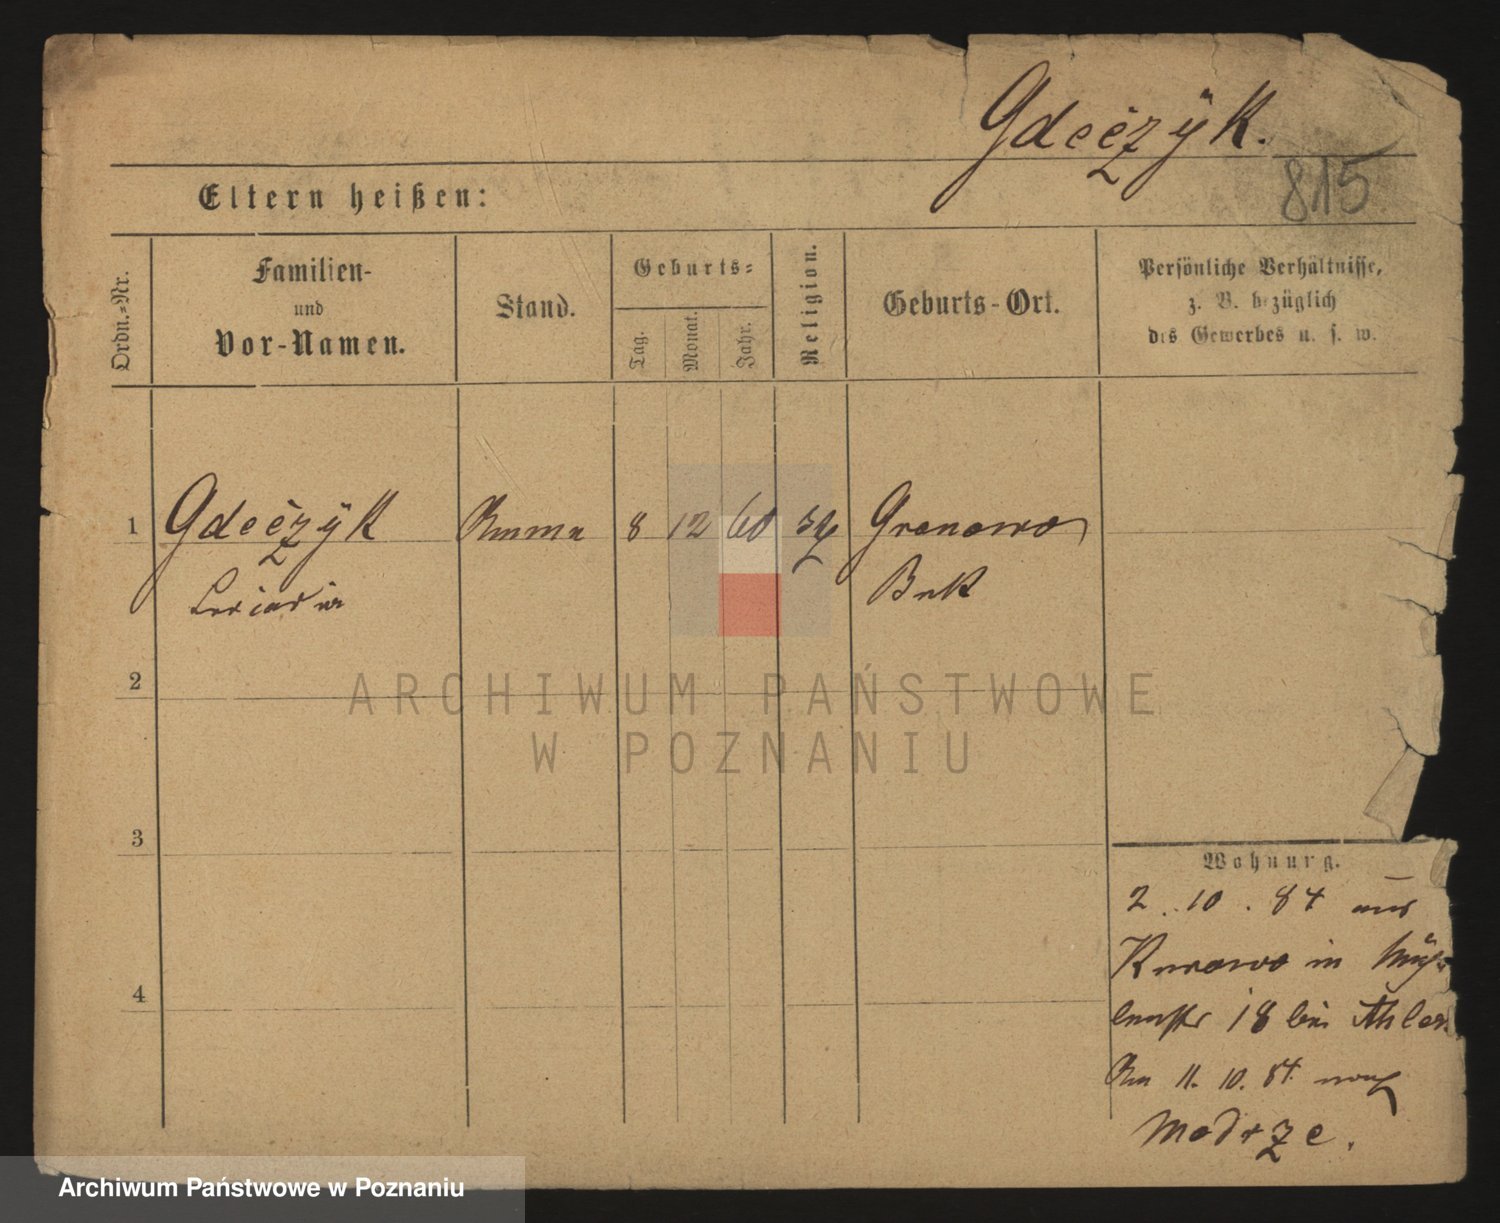 Gdeczÿk.
815
Eltern heißen:
Ordn.-Nr.
Familien-
und
Vor-Namen.
Stand.
Geburts-
Tag.
Monat.
Jahr.
Religion.
Geburts-Ort.
Persönliche Verhältnisse,
z. B. bezüglich
des Gewerbes u. s. w.
1 Gdeczÿk Amme 8 12 60 Granowo
Buk
2
ARCHIWUM PAŃSTWOWE
W POZNANIU
3
Wohnung.
2. 10. 84 aus
Kurowo in Müh-
lenstr 18 bei
Am 11. 10. 84 nach
Modrze.
4
Archiwum Państwowe w Poznaniu